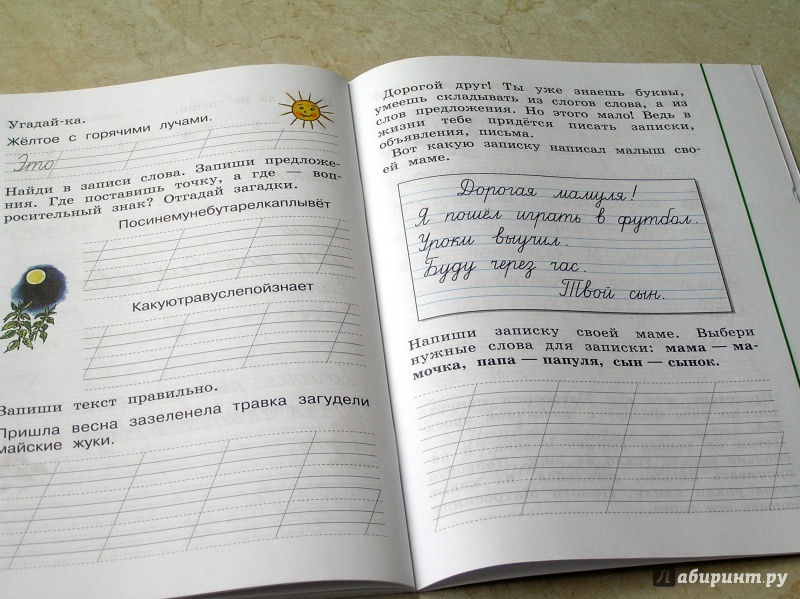 Угадай-ка.
Жёлтое с горячими лучами.
Это
Найди в записи слова. Запиши предложе-
ния. Где поставишь точку, а где — воп-
росительный знак? Отгадай загадки.
Посинемунебутарелкаплывёт
Какуютравуслепойзнает
Запиши текст правильно.
Пришла весна зазеленела травка загудели
майские жуки.
Дорогой друг! Ты уже знаешь буквы,
умеешь складывать из слогов слова, а из
слов предложения. Но этого мало! Ведь в
жизни тебе придётся писать записки,
объявления, письма.
Вот какую записку написал малыш сво-
ей маме.
Дорогая мамуля!
Я пошёл играть в футбол.
Уроки выучил.
Буду через час.
Твой сын.
Напиши записку своей маме. Выбери
нужные слова для записки: мама — ма-
мочка, папа — папуля, сын — сынок.
Лабиринт.ру